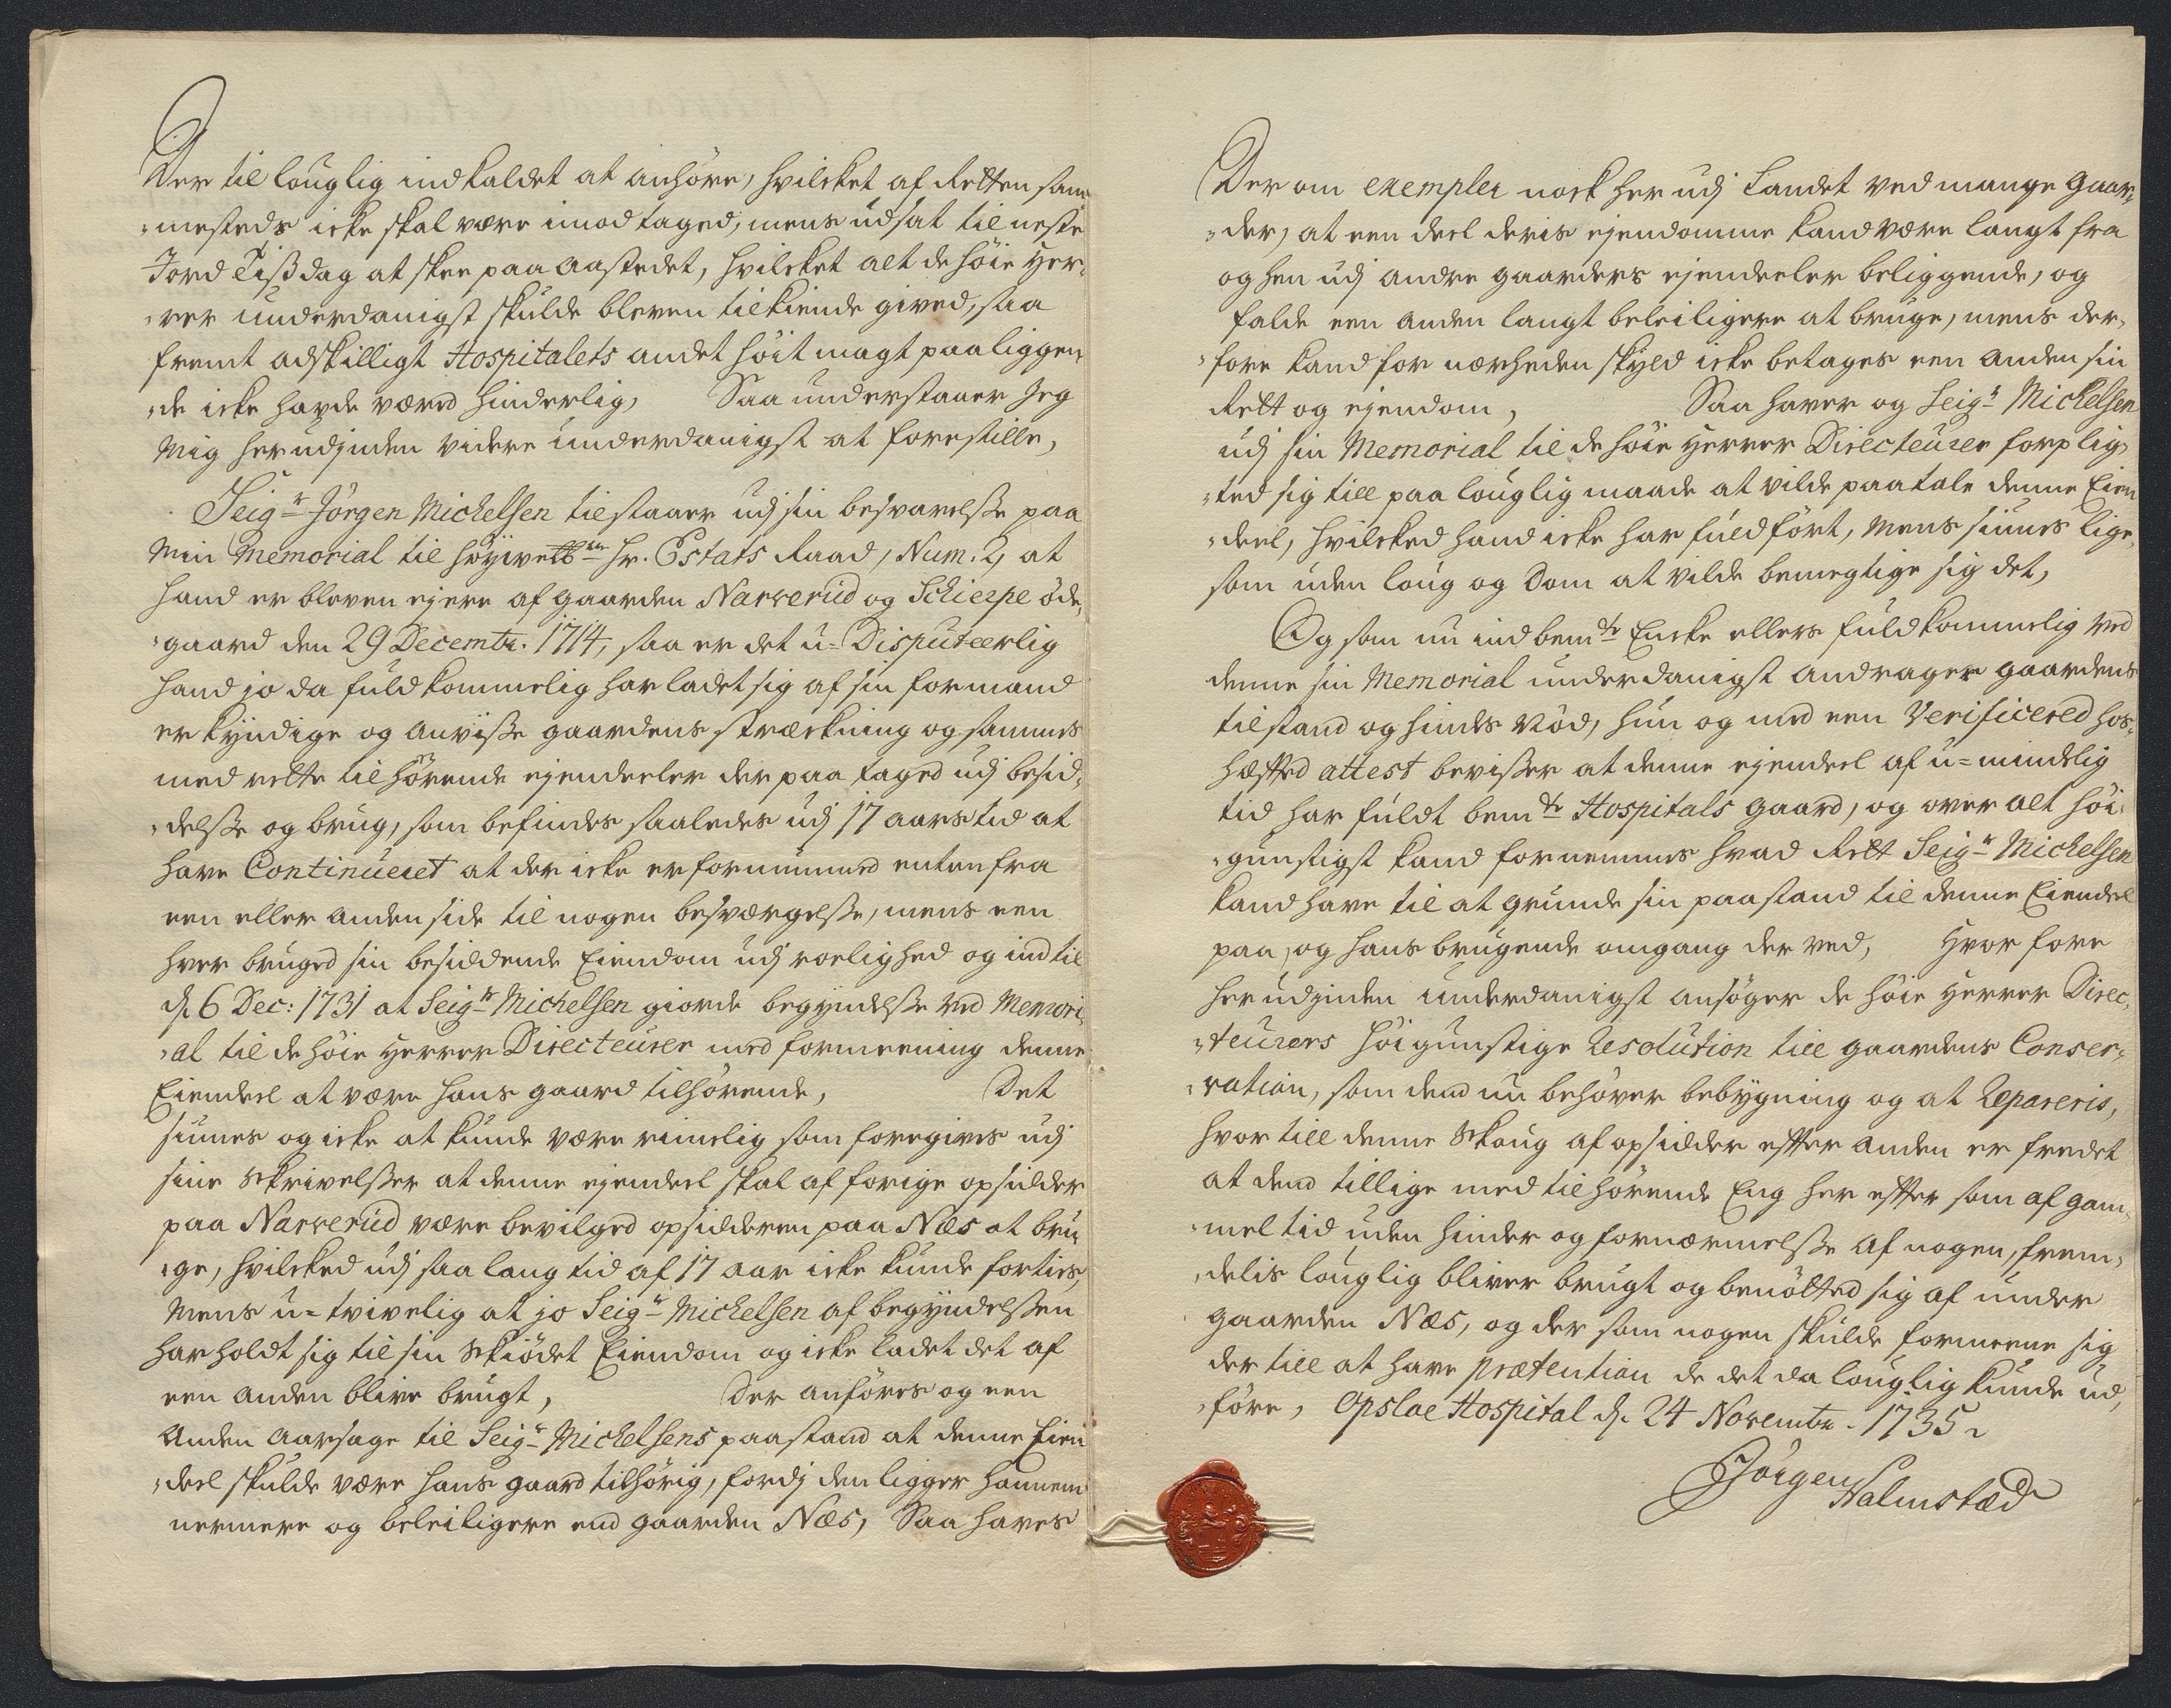 Der til louglig indkaldet at anhöre, hvilcket af Retten sam-
-mesteds icke skal være imod taged, mens udsat til neste
Jord Tißdag at skee paa aastedet, hvilcket alt de höie Her-
-rer underdanigst skulde bleven tilkiende gived, saa
fremt adskilligt Hospitalets andet höit magt paaliggen-
-de icke havde været hinderlig, Saa understaaer Jeg
Mig herudjnden videre underdanigst at forestille,
Seigr Jörgen Michelsen tilstaaer udj sin besvarelsße paa
Min Memorial til Hr. Estats Raad, Num. 2, at
Hand er bleven ejere af gaarden Narverud og Schierpe öde-
-gaard den 29 Decembr. 1714, saa er det u-Disputeerlig
Hand jo da fuldkommelig har ladet sig af sin formand
erkyndige og anviße gaardens strækning og sammes
med rette tilhörende ejendeeler der paa taged udj besid-
-delsße og brug, som befindes saaledes udj 17 aars tid at
have Continueret at der icke er fornummed enten fra
een eller anden side til nogen besværgelsße, mens een
hver bruged sin besiddende Eiendom udj roelighed og indtil
d. 6 Dec: 1731 at Seigr Michelsen giorde begyndelsße ved Memori-
-al til de höie Herrer Directeurer med formeening denne
Eiendeel at være hans gaard tilhörende, Det
siunes og icke at kunde være rimelig som foregives udj
sine Skrivelsßer at denne ejendeel skal af forige opsidder
paa Narverud være bevilged opsidderen paa Næs at bru-
-ge, hvilcked udj saa lang tid af 17 aar icke kunde forties,
Mens u-tvivelig at jo Seigr Michelsen af begyndelsßen
har holdt sig til sin Skiödet Eiendom og icke ladet det af
een anden blive brugt, Der anföres og een
Anden aarsage til Seigr Michelsens paastand at denne Eien-
-deel skulde være hans gaard tilhörig, fordj den ligger hannem
nermere og beleiligere end gaarden Næs, Saa haves
Der om exempler nock her udj Landet ved mange Gaar-
-der, at een deel deris ejendomme kand være langt fra
og hen udj andre gaarders ejendeeler beliggende, og
falde een anden langt beleiligere at bruge, mens der-
-fore kand for nærheden skyld icke betages een anden sin
Rett og ejendom, Saa haver og Seigr Michelsen
udj sin Memorial til de höie Herrer Directeurer forplig-
-ted sig till paa louglig maade at vilde paatale denne Eien-
-deel, hvilcked hand icke har fuldfört, Mens siunes lige-
som uden loug og Dom at vilde bemegtige sig det,
Og som nu indbemte Encke ellers fuldkommelig ved
denne sin Memorial underdanigst andrager gaardens
tilstand og hindes Nöd, hun og med een Verificered hos-
hæfted attest bevißer at denne ejendeel af u-mindelig
tid har fuldt bemte Hospitals gaard, og over alt höi-
-gunstigst kand fornemmes hvad Rett Seigr Michelsen
kand have til at grunde sin paastand til denne Eiendeel
paa, og hans brugende omgang der ved, Hvor fore
herudjnden underdanigst ansöger de höie Herrer Direc-
-teurers höigunstige Resolution till gaardens Conser-
-vation, som dend nu behöver bebygning og at Repareris,
hvor till denne Skoug af opsidder efter anden er fredet
at dend tillige med tilhörende Eng her efter som af gam-
-mel tid uden hinder og fornærmelsße af nogen, frem-
-delis louglig bliver brugt og benötted sig af under
gaarden Næs, og der som nogen skulde formeene sig
der till at have prætention de det da louglig kunde ud-
-före, Opsloe Hospital d. 24 Novembr. 1735.
Jörgen
Halmstæd